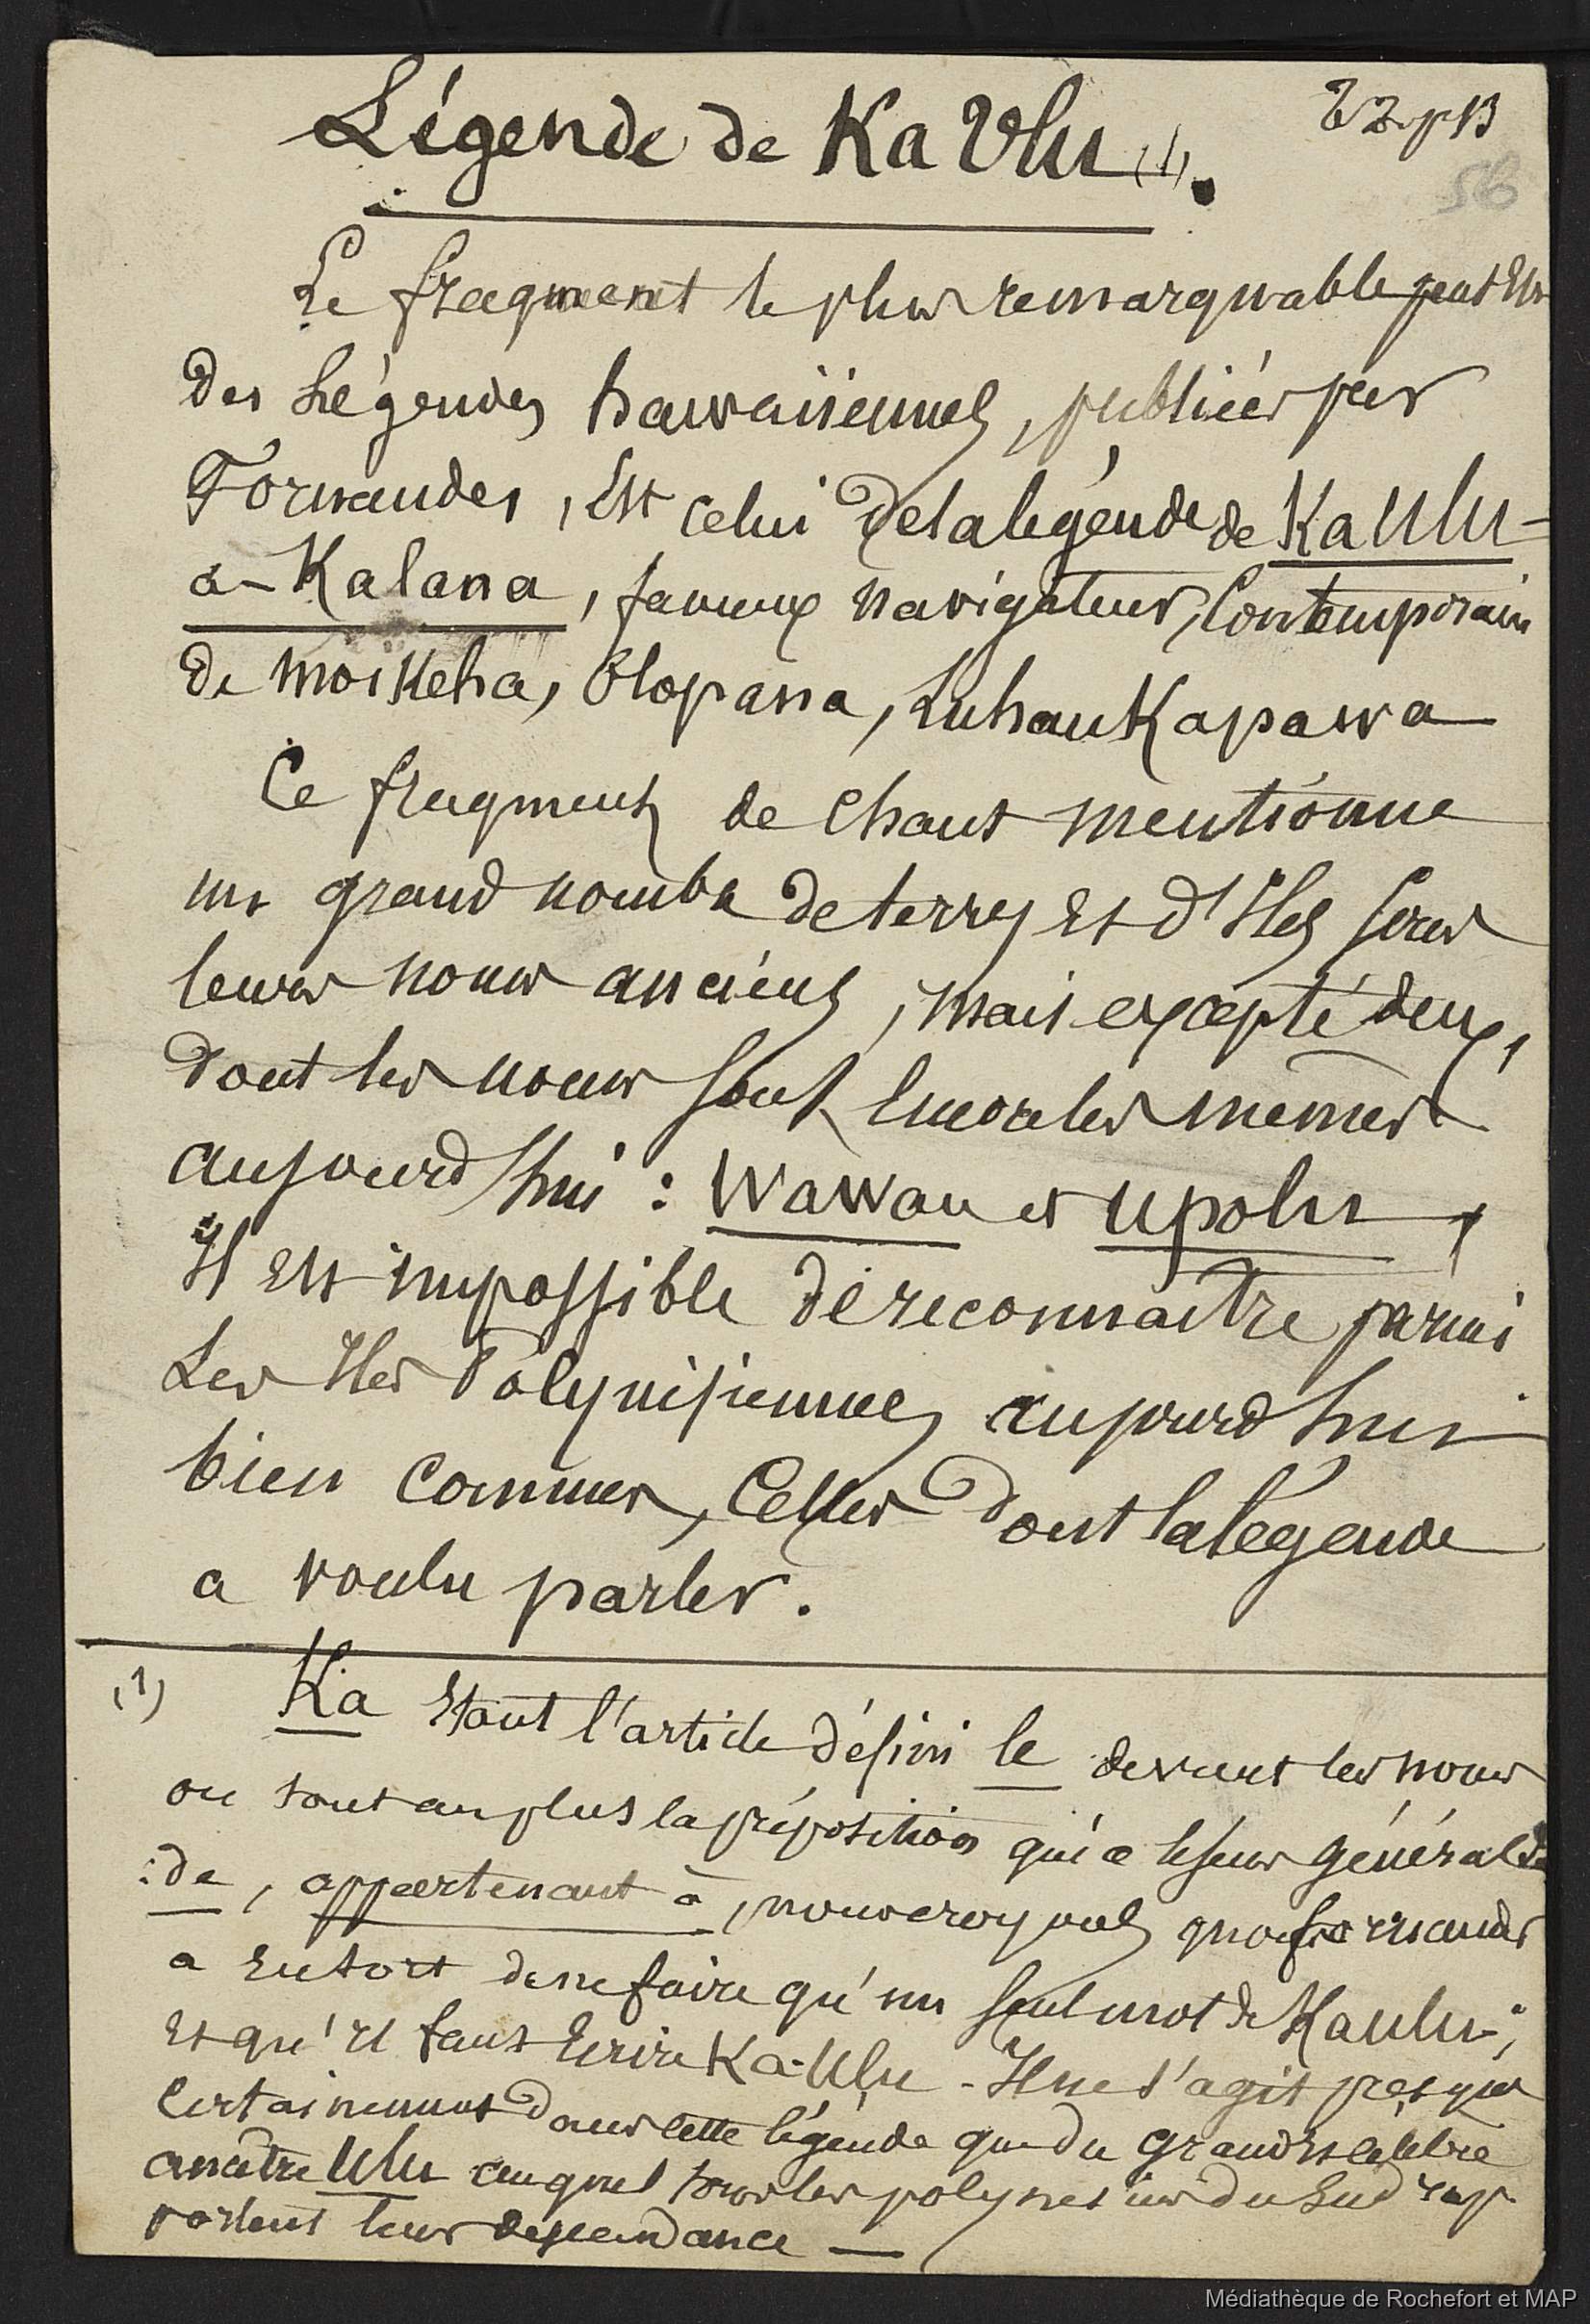 Légende de Ka Ulu (1).
58
Le fragment le plus remarquable peut être
des Légendes hawaiiennes, publiées par
Fornander, est celui de la légende de Ka Ulu-
a-Kalana, fameux navigateur, Contemporain
de Moikeha, Olopana, Luhaukapawa
Ce fragment de chant mentionne
un grand nombre de terres et d'Iles sous
leurs noms anciens, mais excepté deux,
dont les noms sont encore les mêmes
aujourd'hui : Wawau et Upolu,
Il est impossible de reconnaitre parmi
Les Iles Polynisiennes aujourd'hui
bien connues, Celles dont la légende
a voulu parler.
(1) Ka étant l'article défini le devant les noms
ou tout au plus la préposition qui a le sens général de
: de, appartenant à, nous croyons que Fornander
a eu tort de ne faire qu'un seul mot de Kaulu;
et qu'il faut écrire Ka-Ulu - Il ne s'agit presque
certainement dans cette légende que du grand et célèbre
ancêtre Ulu auquel tous les polynesiens du Sud rap
portent leur descendance —
Médiathèque de Rochefort et MAP